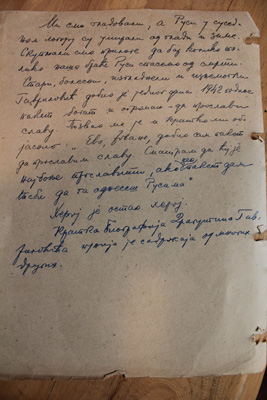 Ми смо гладовали, а Руси у сусед-
ном логору су умирали од глади и зиме.
Скупљали смо прилоге да бар колико то-
лико наше браће Руса спасемо од смрти.
Стари, болесни, изгладнели и изнемогли
Гавриловић добио је једног дана 1942 године
пакет богат и огроман - да прославим
славу. Позвао ме је и кратко ми об-
јаснио: „Ево, добио сам пакет
да прославим славу. Сматрам да ћу је
најбоље прославити, ако овај пакет дам
теби да га однесеш Русима"
Херој је остао херој.
Кратка биографија Драгутина Гав-
риловића пуна је садржаја од многих
других.